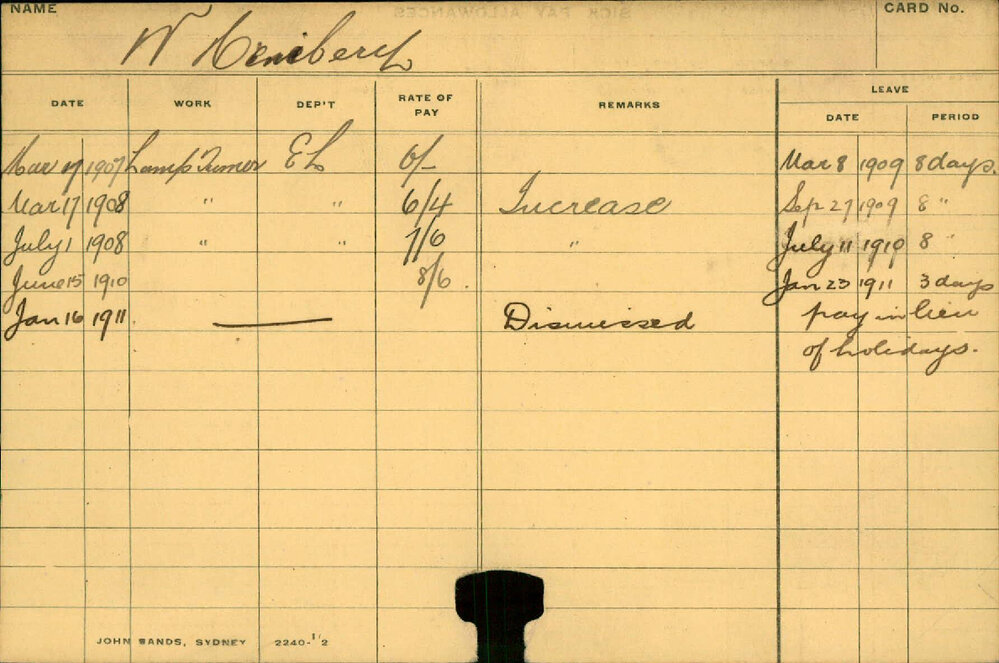 NAME
CARD No.
W
DATE WORK DEP'T RATE OF PAY REMARKS LEAVE
DATE PERIOD
Mar 17 1907 Lamp Trimer EL 6/- Mar 8 1909 8 days.
Mar 17 1908 " " 6/4 Increase Sep 27 1909 8 "
July 1 1908 " " 7/6 " July 11 1910 8 "
June 15 1910 8/6. Jan 23 1911 3 days
Jan 16 1911. — Dismissed pay in lieu
of holidays.
JOHN SANDS, SYDNEY 2240-